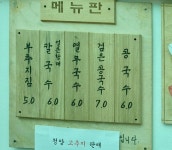 메뉴판
부추지짐 5.0
얼큰한 칼국수 6.0
열무국수 6.0
검은콩국수 7.0
콩국수 6.0
청양 고추지 판매 입니다